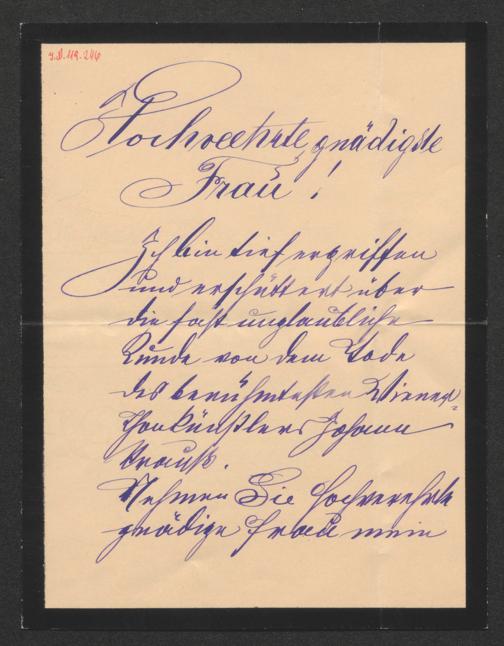 I.N. 119.246
Hochverehrte gnädigste
Frau!
Ich bin tief ergriffen
und erschüttert über
die fast unglaubliche
Kunde von dem Tode
des berühmtesten Wiener
Thonkünstlers Johann
Strauß.
Nehmen Sie hochverehrte
gnädige Frau mein